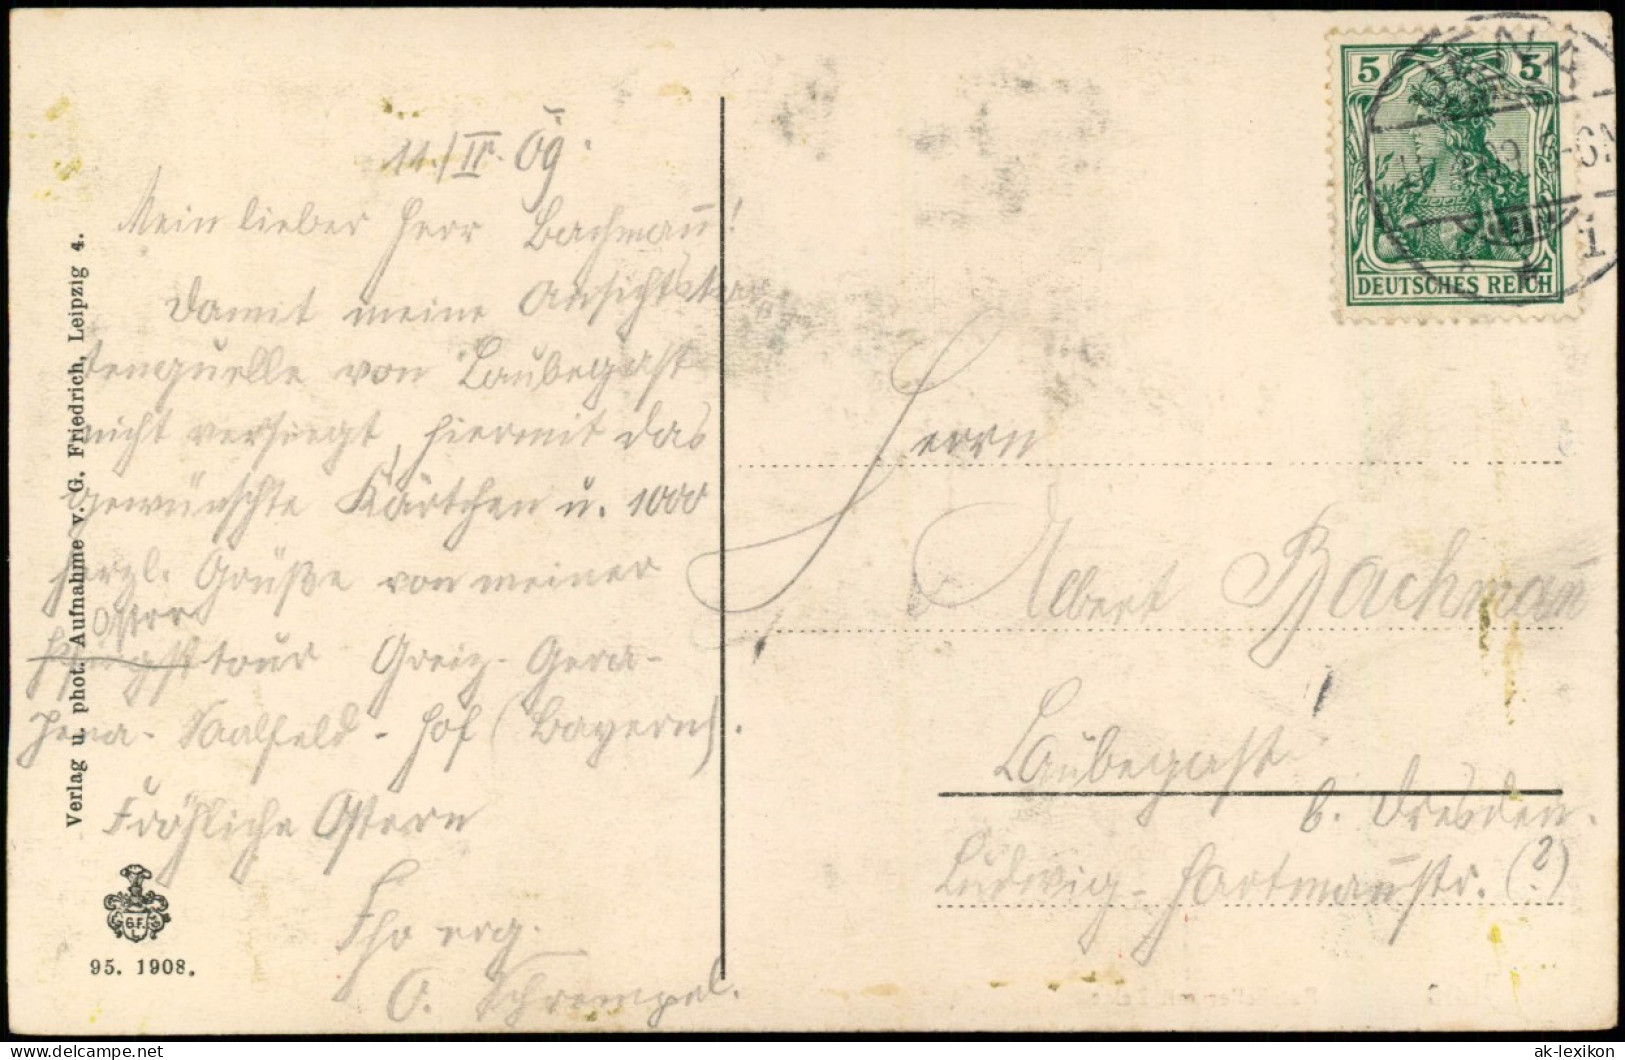 11./IV. 09.
Mein lieber Herr Bachmann!
Damit meine Ansichtskar
tenquelle von Laubegast
nicht versiegt, hiermit das
gewünschte Kärtchen u. 1000
herzl. Grüße von meiner
Oster
Pfingsttour Greiz - Gera -
Jena - Saalfeld - Hof (Bayern).
Fröhliche Ostern
Ihr erg.
O. Schrempel.
Verlag u. phot. Aufnahme v. G. Friedrich, Leipzig 4.
G.F.
L.
95. 1908.
5 5
DEUTSCHES REICH
JENA
1
Herrn
Albert Bachmann
Laubegast
b. Dresden.
Ludwig-Hartmannstr. (?)
ak-lexikon